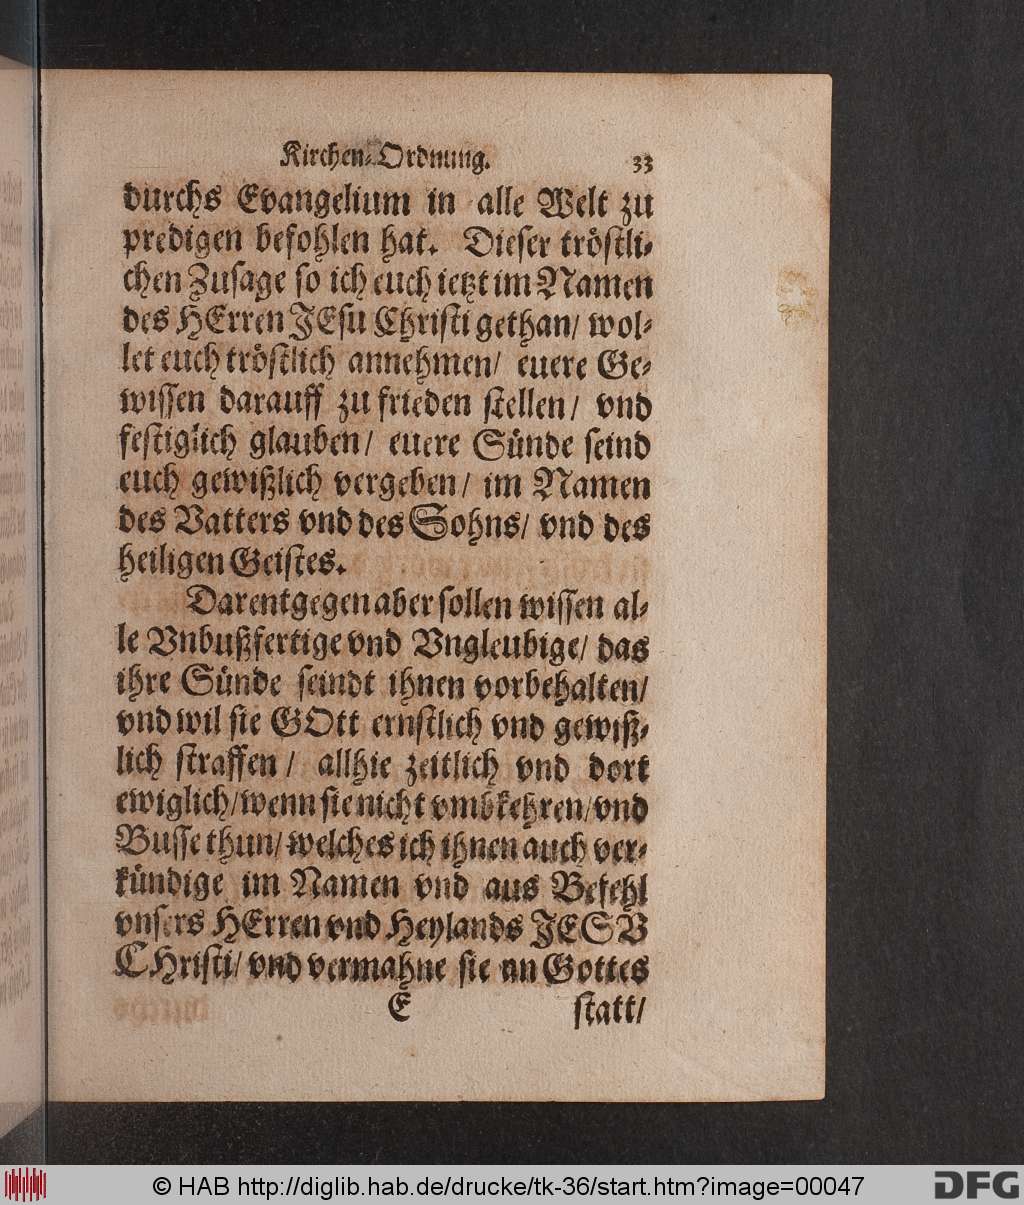 Kirchen-Ordnung. 33
durchs Evangelium in alle Welt zu
predigen befohlen hat. Dieser tröstli-
chen Zusage so ich euch ietzt im Namen
des HErren JEsu Christi gethan/ wol-
let euch tröstlich annehmen/ euere Ge-
wissen darauff zu frieden stellen/ vnd
festiglich glauben/ euere Sünde seind
euch gewißlich vergeben/ im Namen
des Vatters vnd des Sohns/ vnd des
heiligen Geistes.
Darentgegen aber sollen wissen al-
le Vnbußfertige vnd Vngleubige/ das
ihre Sünde seindt ihnen vorbehalten/
vnd wil sie GOtt ernstlich vnd gewiß-
lich straffen/ allhie zeitlich vnd dort
ewiglich/ wenn sie nicht vmbkehren/ vnd
Busse thun/ welches ich ihnen auch ver-
kündige im Namen vnd aus Befehl
vnsers HErren vnd Heylands JESV
CHristi/ vnd vermahne sie an Gottes
E statt/
© HAB http://diglib.hab.de/drucke/tk-36/start.htm?image=00047
DFG